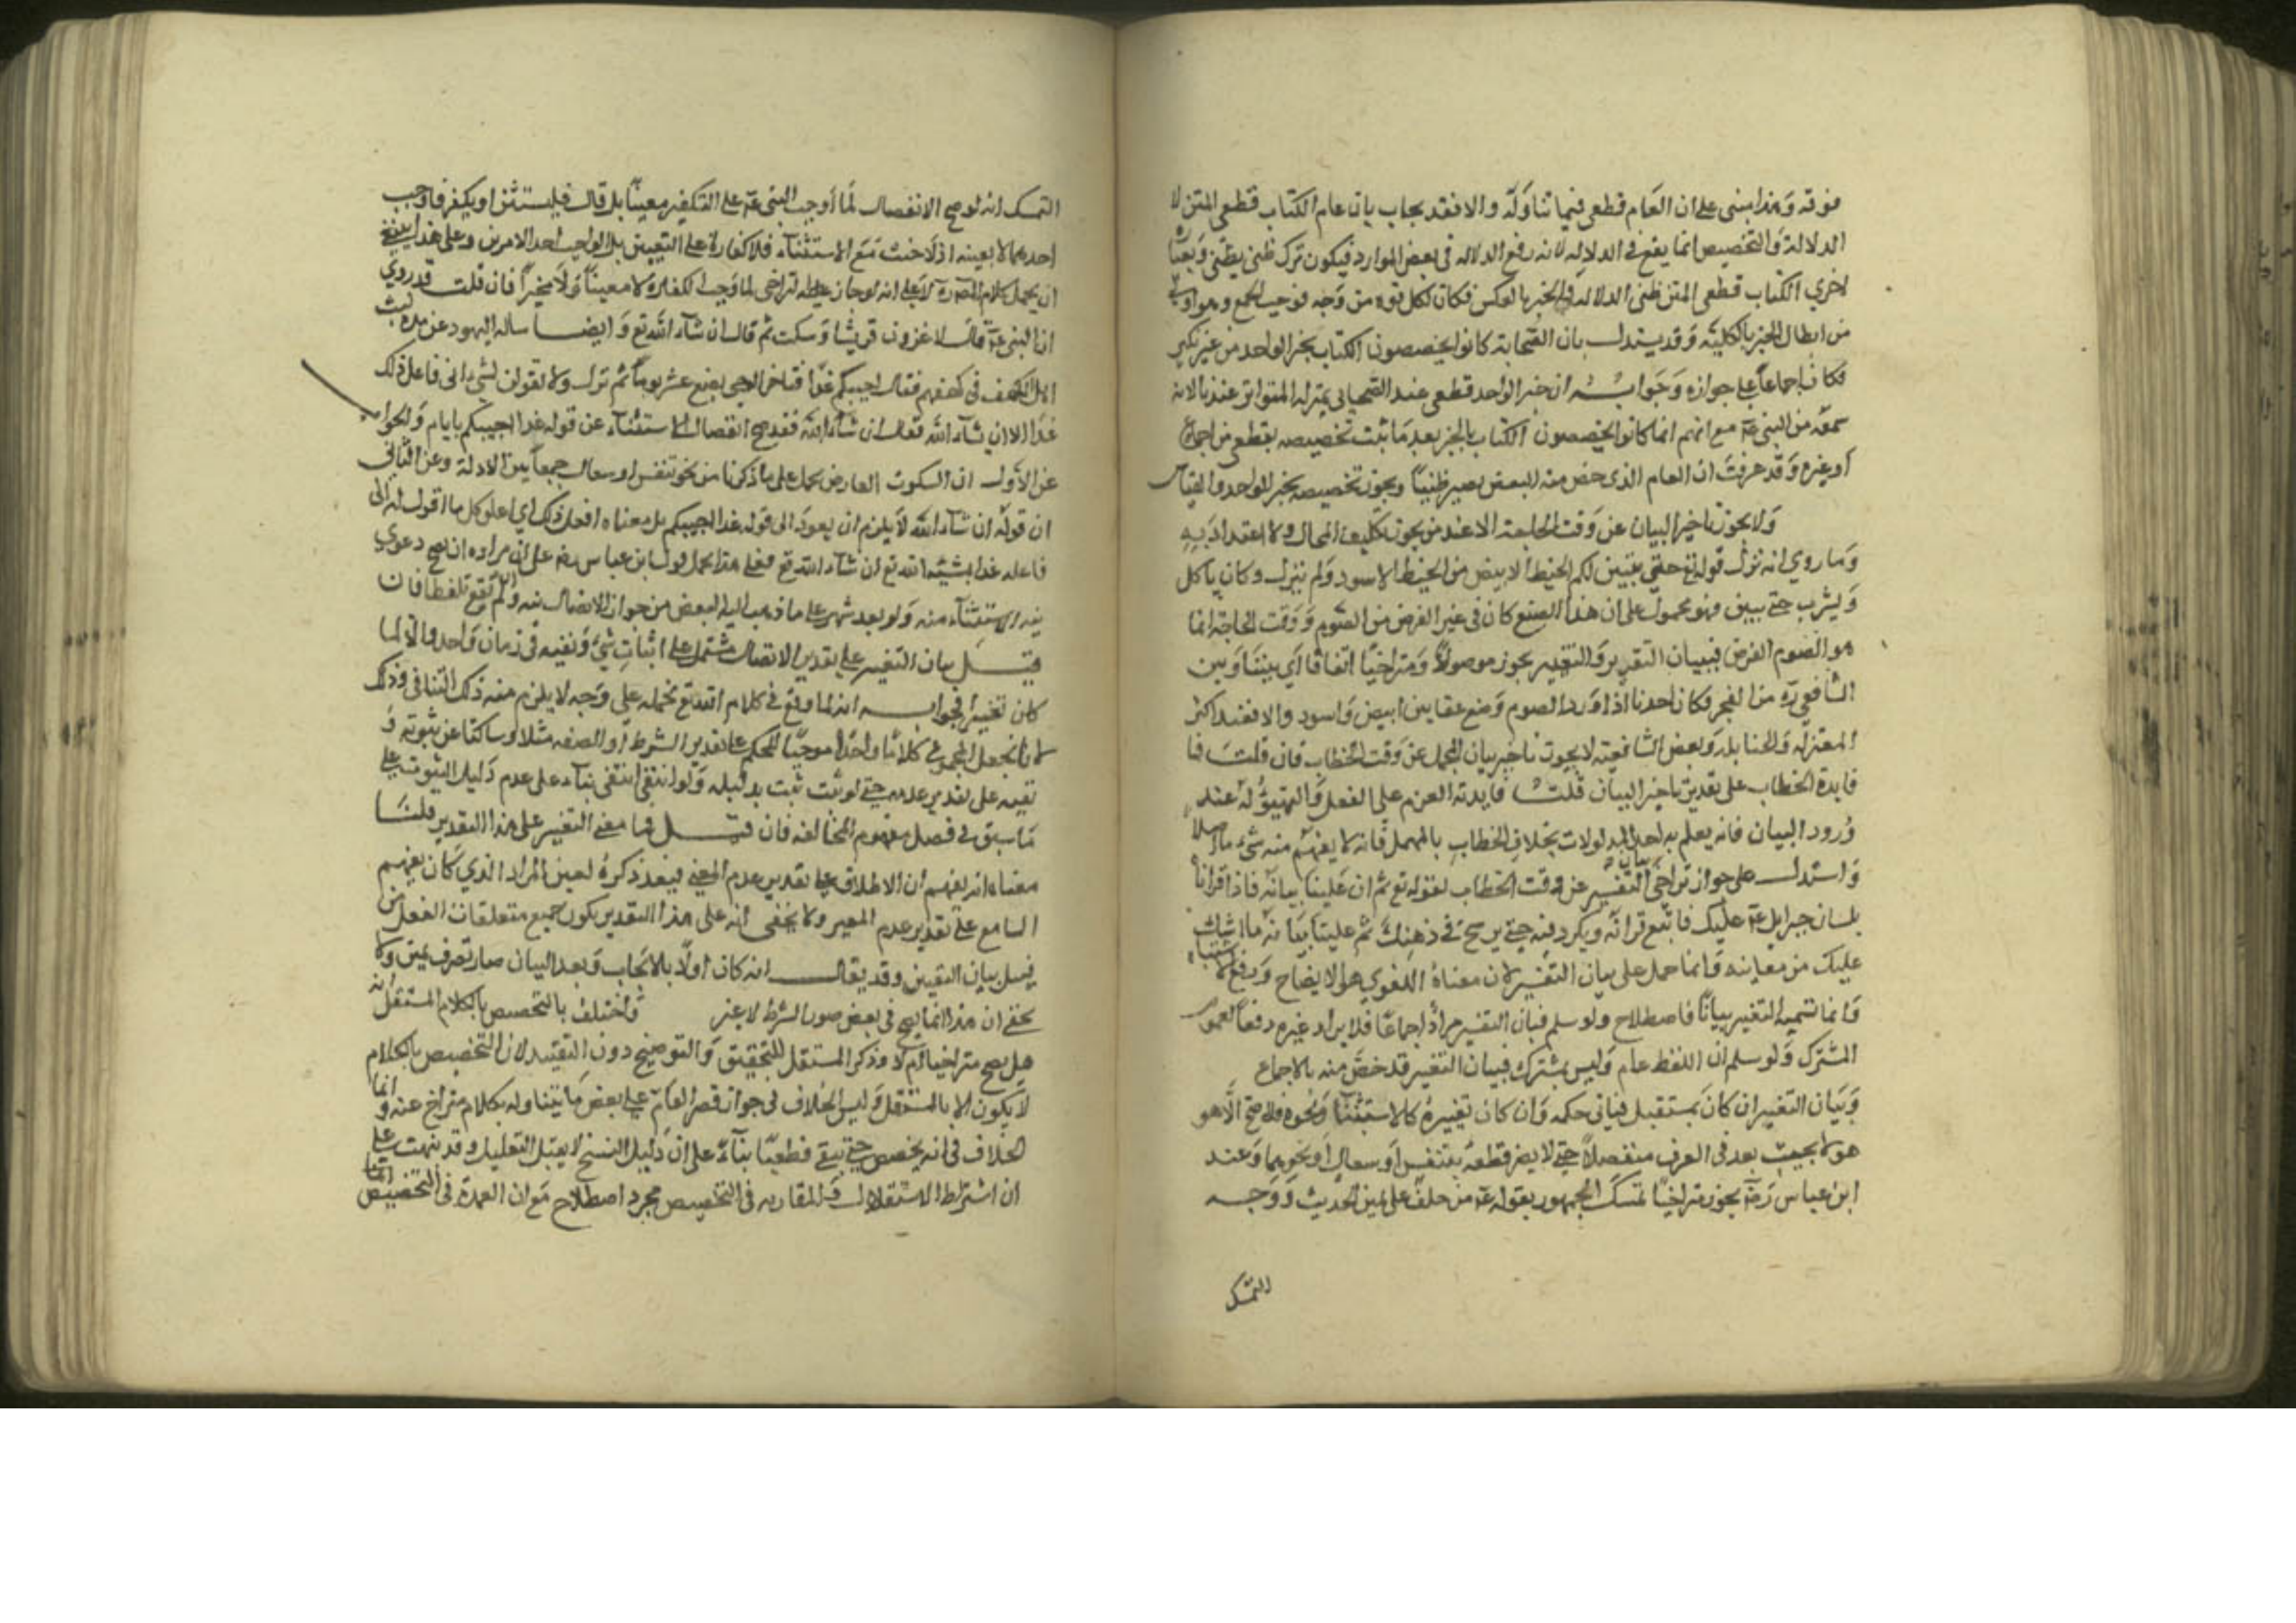 فوقه وهذا مبنى على ان العام قطعى فيما تناوله والا فقد يجاب بان عام الكتاب قطعى المتن لا
الدلالة والتخصيص انما يقع فى الدلالة لانه رفع الدلالة فى بعض الموارد فيكون ترك ظنى بظنى وبعبارة
اخري الكتاب قطعى المتن ظنى الدلالة والخبر بالعكس فكان لكل قوة من وجه فوجب الجمع وهو اولى
من ابطال الخبر بالكلية وقد يستدل بان الصحابة كانوا يخصصون الكتاب بخبر الواحد من غير نكير
فكان اجماعا على جوازه وجوابه ان خبر الواحد قطعى عند الصحابى بمنزلة المتواتر عندنا لانه
سمعه من النبى عم مع انهم انما كانوا يخصصون الكتاب بالخبر بعد ما ثبت تخصيصه بقطعى من اجماع
او غيره وقد عرفت ان العام الذى خص منه البعض يصير ظنيا ويجوز تخصيصه بخبر الواحد والقياس
ولا يجوز تاخير البيان عن وقت الحاجة الا عند من يجوز تكليف المحال ولا اعتداد به
وما روي انه نزل قوله تع حتى يتبين لكم الخيط الابيض من الخيط الاسود ولم ينزل وكان ياكل
ويشرب حتى يبين فهو محمول على ان هذا الصنع كان فى غير الفرض من الصوم ووقت الحاجة انما
هو الصوم الفرض فبيان التقرير والتفسير يجوز موصولا ومتراخيا اتفاقا اى بيننا وبين
الشافعى ره من الفجر فكان احدنا اذا اورد الصوم وضع عقالين ابيض واسود والا فعند اكثر
المعتزلة والحنابلة وبعض الشافعية لا يجوز تاخير بيان المجمل عن وقت الخطاب فان قلت فما
فايدة الخطاب على تقدير تاخير البيان قلت فايدته العزم على الفعل والتهيؤ له عند
ورود البيان فانه يعلم به احد المدلولات بخلاف الخطاب بالمهمل فانه لا يفهم منه شىء ما اصلا
واستدل على جواز تراخى بيان التفسير عن وقت الخطاب لقوله تع ثم ان علينا بيانه فاذا قراناه
بلسان جبرايل عم عليك فاتبع قرانه ويكرر فيه حتى يرسخ فى ذهنك ثم علينا بيانه ما اشكل
عليك من معانيه وانما حمل على بيان التفسير لان معناه اللغوي هو الايضاح ورفع الاشتباه
وانما تسمية التغيير بيانا فاصطلاح ولو سلم فبيان التفسير مراد اجماعا فلا يراد غيره دفعا لعموم
المشترك ولو سلم ان اللفظ عام وليس بمشترك فبيان التغيير قد خص منه بالاجماع
وبيان التغيير ان كان بمستقبل فياتى حكمه وان كان تغييره كالاستثناء ونحوه فلا يصح الا هو
هو لا بحيث يعد فى العرف منفصلا حتى لا يضر قطعه بتنفس او سعال او نحوهما وعند
ابن عباس رضه يجوز متراخيا تمسك الجمهور بقوله عم من حلف على يمين الحديث ووجه
التمسك
التمسك انه لو صح الانفصال لما اوجب النبى عم على التكفير معينا بل قال فليستثن او يكفر فاوجب
احدهما لا بعينه اذ لا حنث مع الاستثناء فلا كفارة على التعيين بل الواجب احد الامرين وعلى هذا ينبغى
ان يحمل كلام المصره لا على انه لو جاز تراخى لما وجب الكفارة لا معينا ولا مخيرا فان قلت قد روي
ان النبى عم قال لاغزون قريشا وسكت ثم قال ان شاء الله تع وايضا ساله اليهود عن مدة لبث
اهل الكهف فى كهفهم فقال اجيبكم غدا فتاخر الوحى بضع عشر يوما ثم نزل ولا تقولن لشىء انى فاعل ذلك
غدا الا ان يشاء الله فقال ان شاء الله فقد صح انفصال الاستثناء عن قوله غدا اجيبكم بايام والجواب
عن الاول ان السكوت العارض يحمل على ما ذكرنا من نحو تنفس او سعال جمعا بين الادلة وعن الثانى
ان قوله ان شاء الله لا يلزم ان يعود الى قوله غدا اجيبكم بل معناه افعل ذلك اي اعلق كل ما اقول له انى
فاعله غدا بمشية الله تع ان شاء الله تع فعلى هذا يحمل قول ابن عباس رضه على ان مراده ان يصح دعوي
نية الاستثناء منه ولو بعد شهر على ما ذهب اليه البعض من جواز الاتصال نية ولم يقع تلفظا فان
قيل بيان التغيير على تقدير الاتصال مشتمل على اثبات شىء ونفيه فى زمان واحد والا لما
كان تغييرا فجوابه انه لما وقع فى كلام الله تع نحمله على وجه لا يلزم منه ذلك التنافى وذلك
لانا نجعل المجموع كلاما واحدا موجبا للحكم على تقدير الشرط او الصفة مثلا وساكتا عن ثبوته و
نفيه على تقدير عدمه حتى لو ثبت ثبت بدليله ولو انتفى انتفى بناء على عدم دليل الثبوت على
ما سبق فى فصل مفهوم المخالفة فان قيل فما معنى التغيير على هذا التقدير قلنا
معناه انه يفهم ان الاطلاق على تقدير عدم المغير فبعد ذكره لعين المراد الذي كان يفهم
السامع على تقدير عدم المغير ولا يخفى انه على هذا التقدير يكون جميع متعلقات الفعل من
قبيل بيان التغيير وقد يقال انه كان اولا بالايجاب وبعد البيان صار تصرف يمين ولا
يخفى ان هذا انما يصح فى بعض صور الشرط لا غير واختلف بالتخصيص بالكلام المستقل انه
هل يصح متراخيا ام لا وذكر المستقل للتحقيق والتوضيح دون التقييد لان التخصيص بالكلام
لا يكون الا بالمستقل وليس الخلاف فى جواز قصر العام على بعض ما يتناوله بكلام متراخ عنه وانما
الخلاف فى انه يخصص حتى يبقى قطعيا بناء على ان دليل النسخ لا يقبل التعليل وقد نبهت على
ان اشتراط الاستقلال والمقارنة فى التخصيص مجرد اصطلاح مع ان العمدة فى التخصيص انما